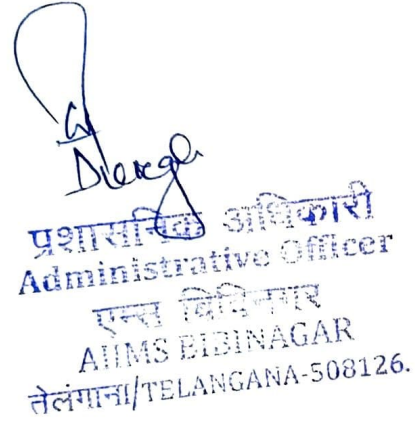 प्रशासनिक अधिकारी
Administrative Officer
एम्स बिबिनगर
AIIMS BIBINAGAR
तेलंगाना/TELANGANA-508126.